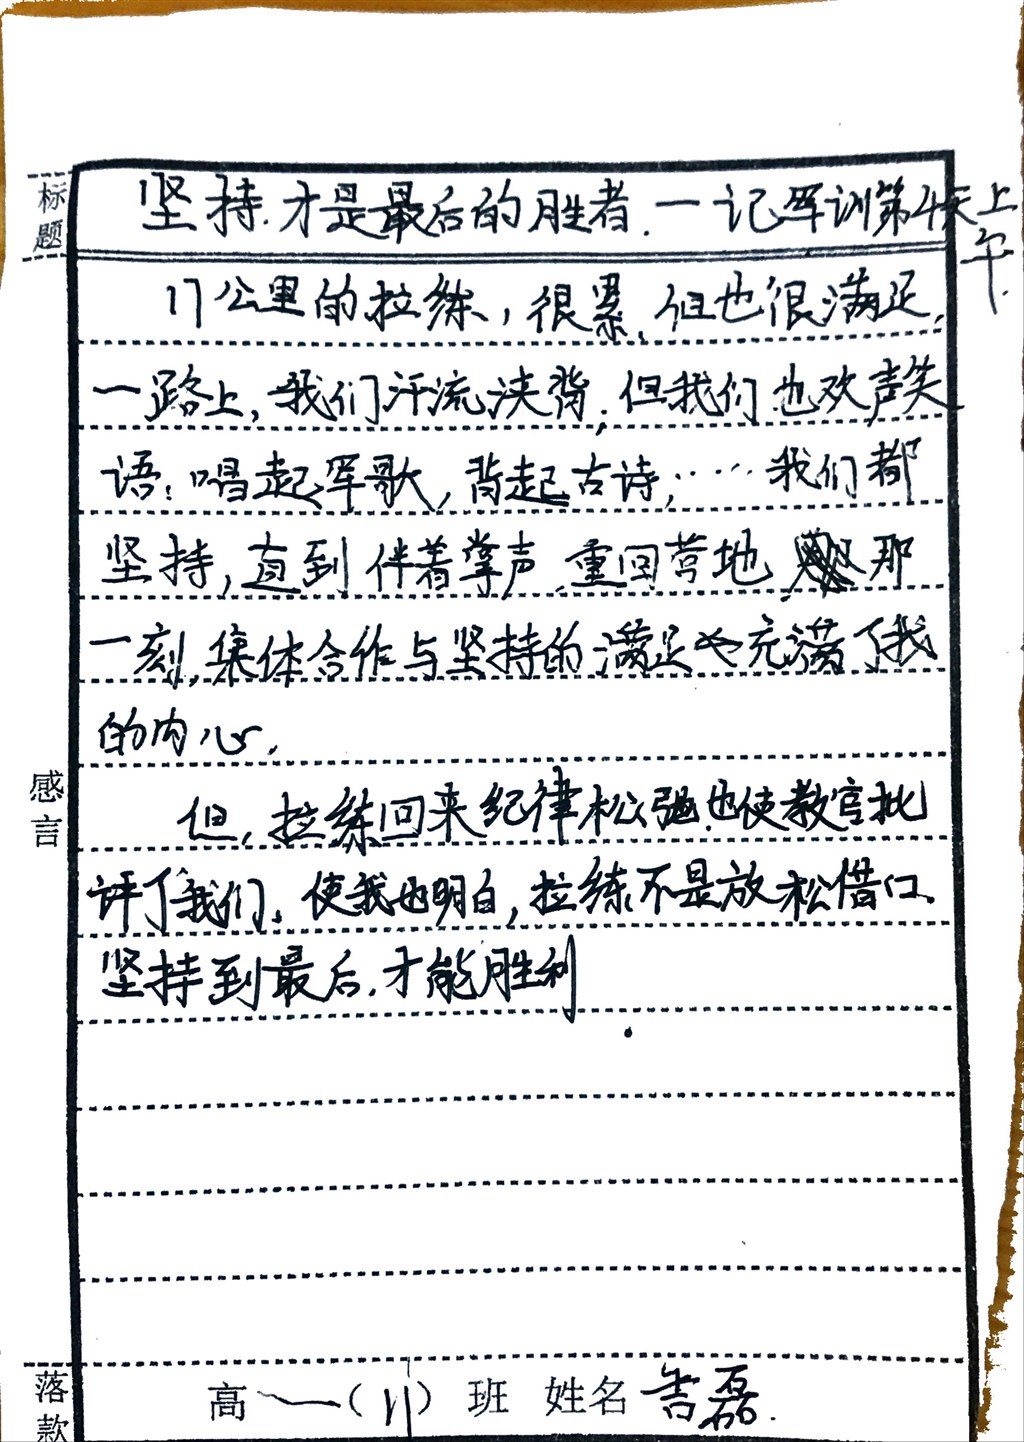 标题
坚持.才是最后的胜者.一记军训第4天上午.
17公里的拉练,很累,但也很满足,
一路上,我们汗流浃背,但我们也欢声笑
语:唱起军歌,背起古诗,……我们都
坚持,直到伴着掌声重回营地 那
一刻,集体合作与坚持的满足也充满了我
的内心.
感言
但,拉练回来纪律松弛也使教官批
评了我们.使我也明白,拉练不是放松借口.
坚持到最后.才能胜利.
落款
高一(11)班 姓名 磊.